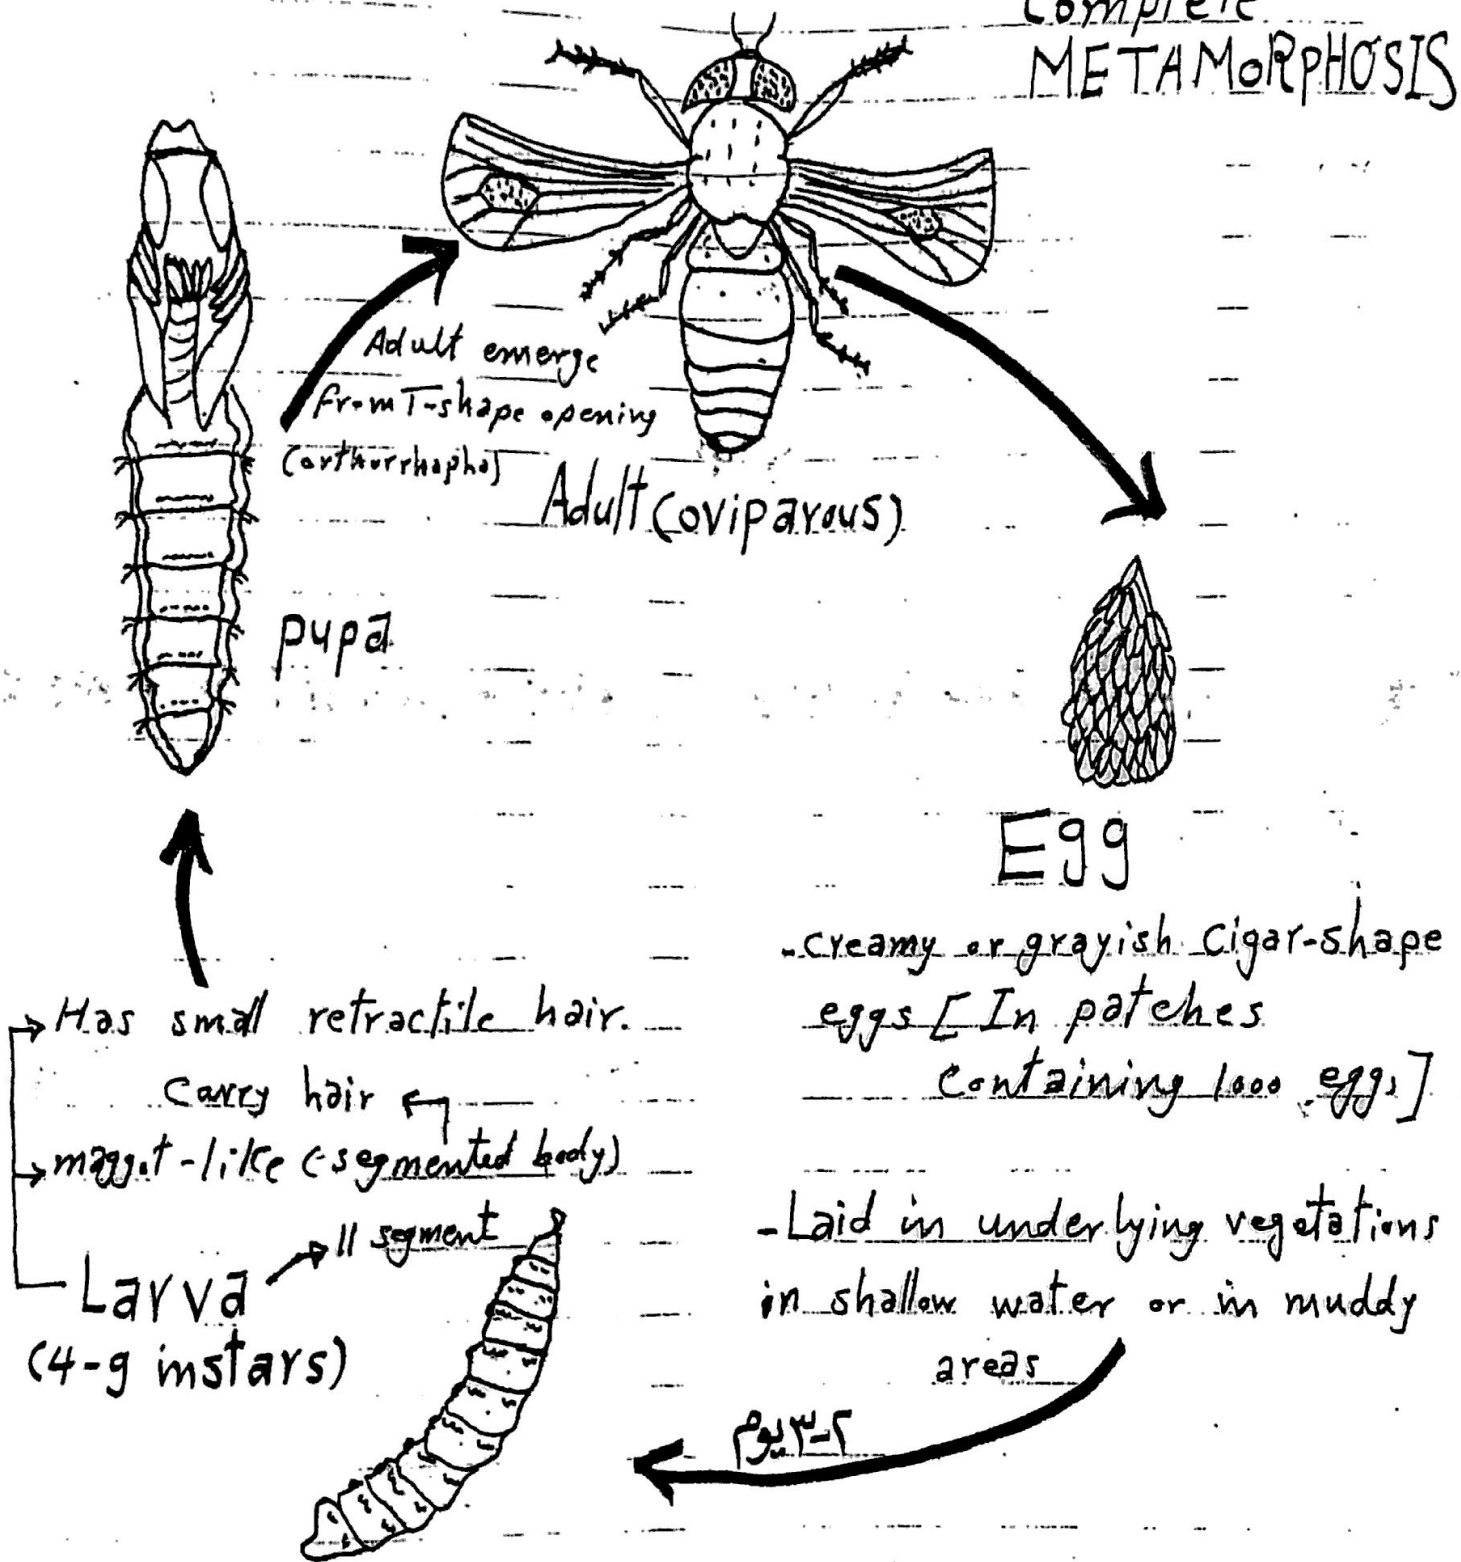 Complete
METAMORPHOSIS
Adult emerge
from T-shape opening
(orthorrhapha)
Adult (oviparous)
pupa
Egg
-creamy or grayish Cigar-shape
eggs [In patches
Containing 1000 eggs]
-Laid in underlying vegetations
in shallow water or in muddy
areas
٢-٣ يوم
Has small retractile hair.
Carry hair
maggot-like (segmented body)
11 segment
Larva
(4-9 instars)